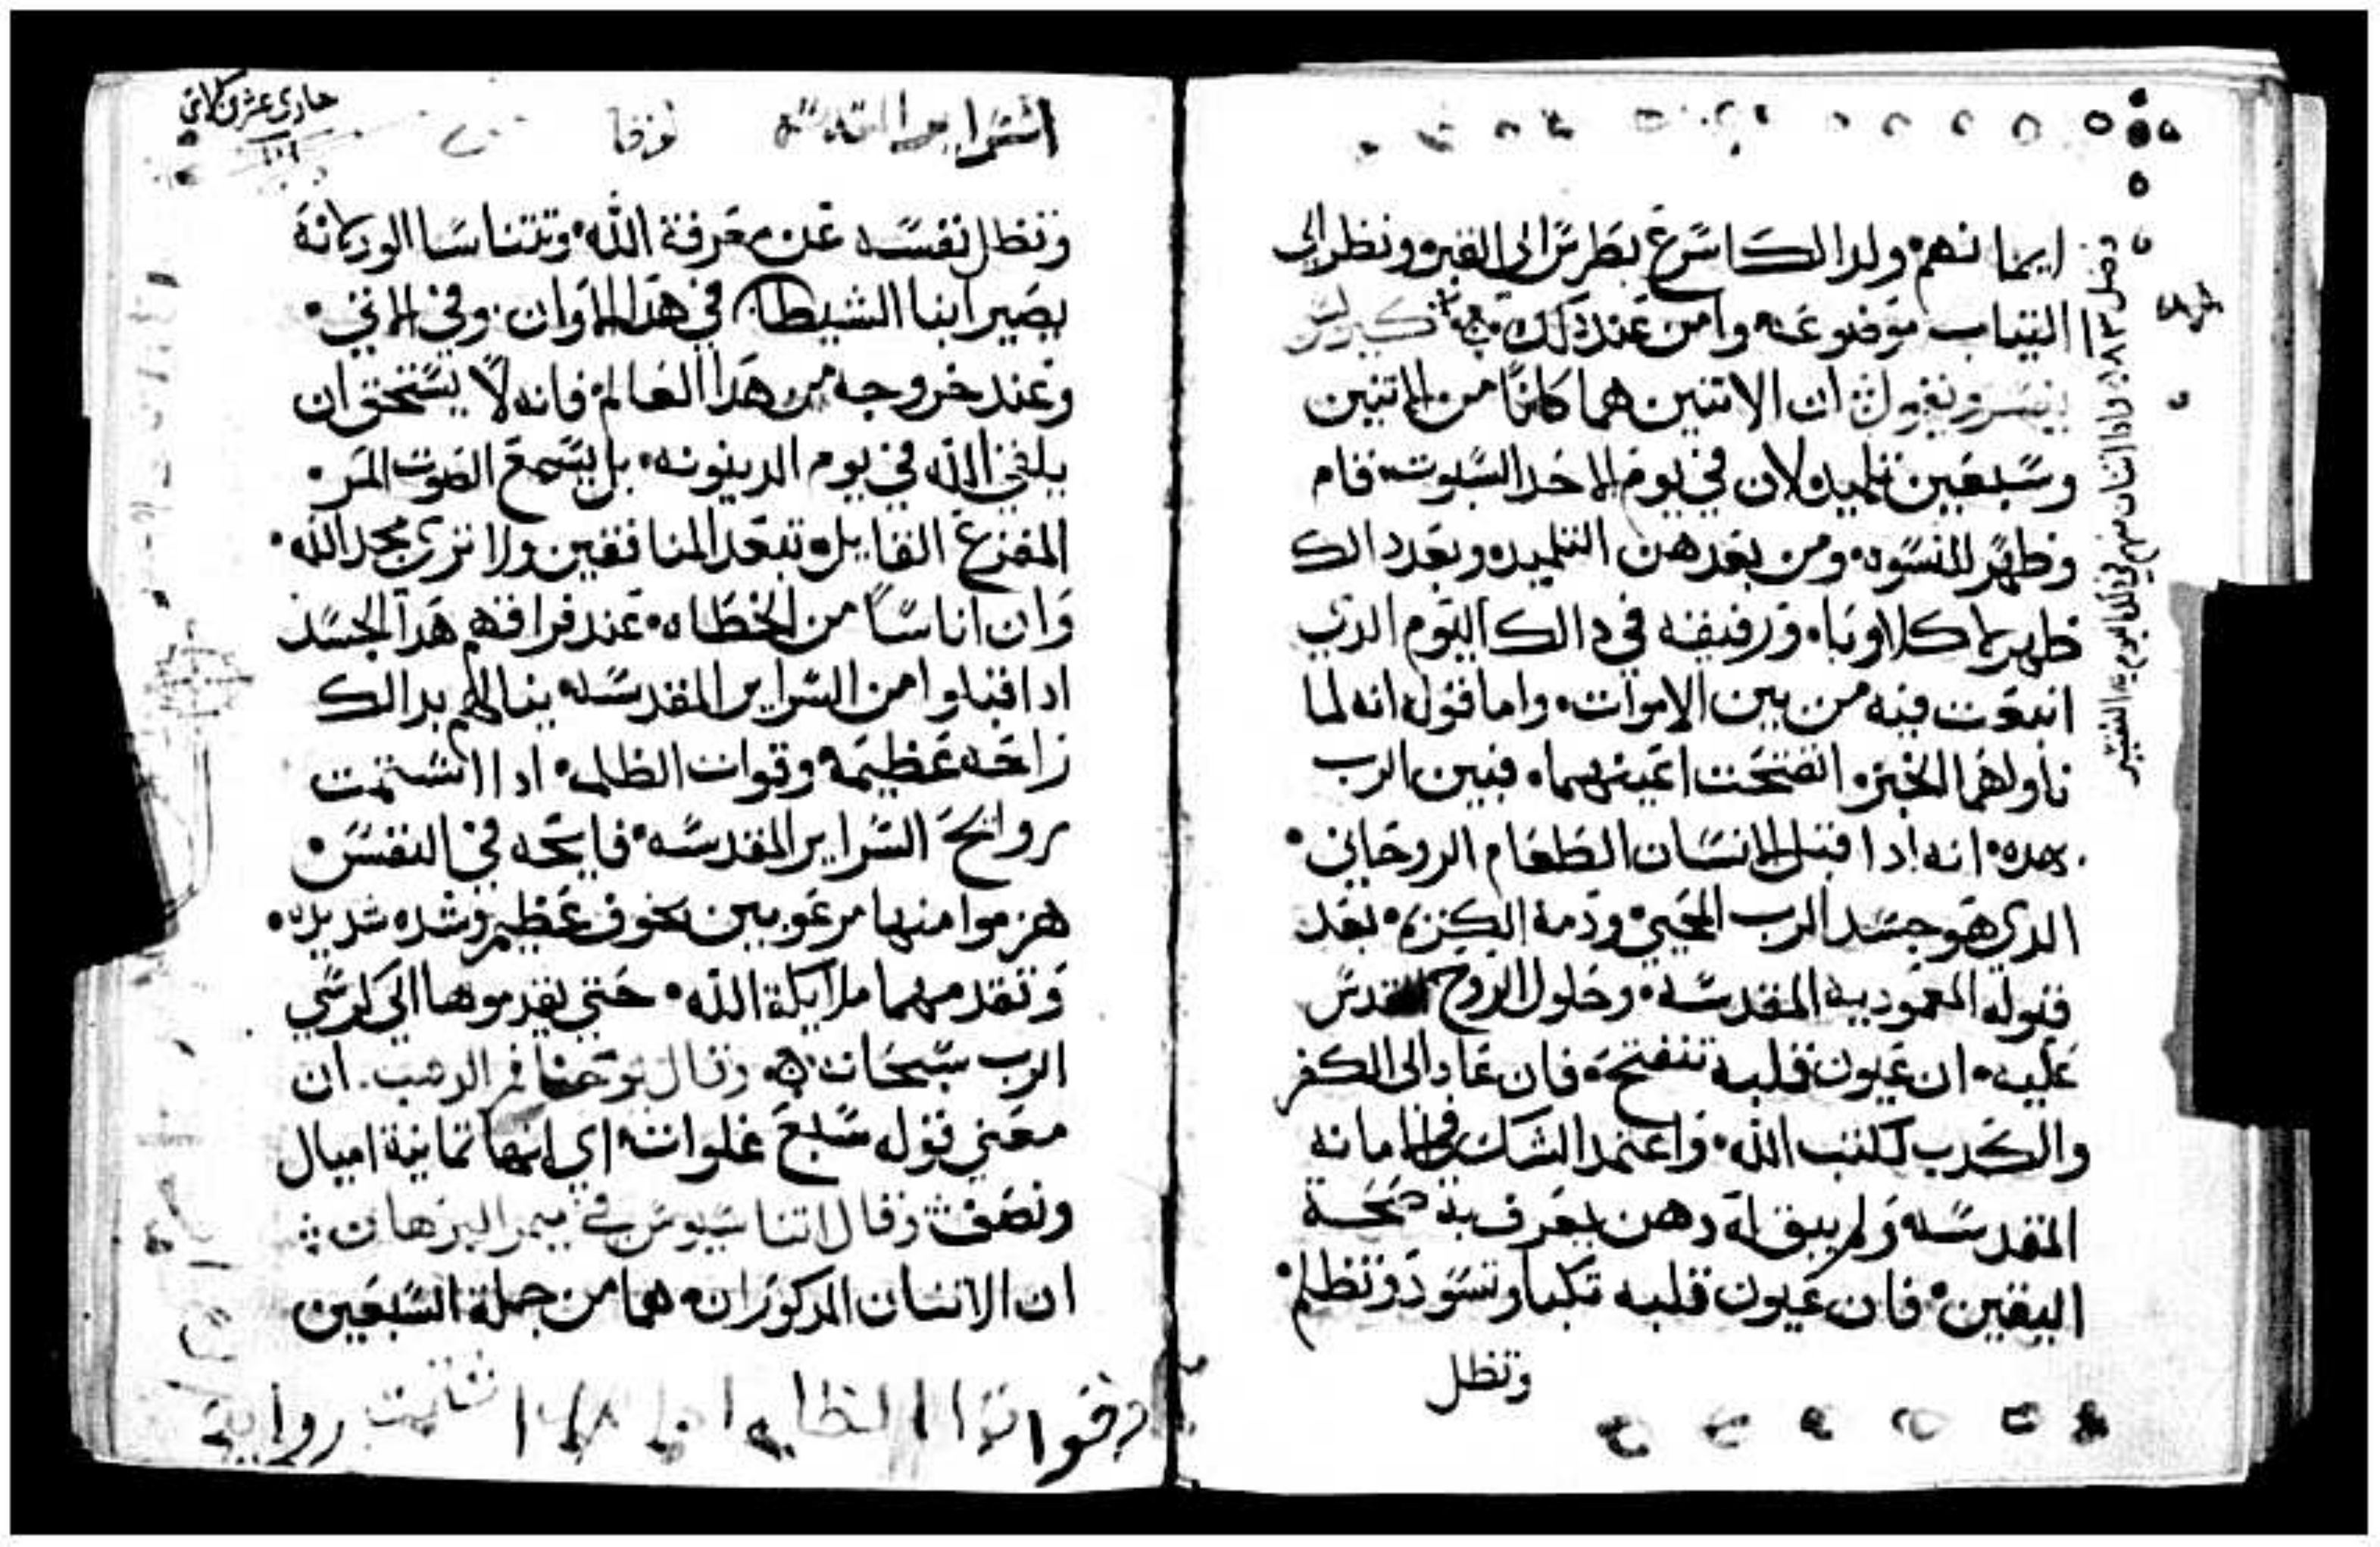 ايمانهم ولدالك اسرع بطرس الى القبر ونظر الى
التياب موضوعه وامن عند دلك كيرلس
يفسر ويقول ان الاتنين هما كانا من الاتنين
وسبعين تلميد لان في يوم الاحد السبوت قام
وظهر للنسوه ومن بعدهن التلميد وبعد دالك
ظهر لاكلاوبا ورفيقه في دالك اليوم الدي
انبعت فيه من بين الاموات واما قول انه لما
ناولهما الخبز انفتحت اعينهما فبين الرب
بهده انه ادا قبل الانسان الطعام الروحاني
الدي هو جسد الرب المحيي ودمه الكريم بعد
قبوله المعموديه المقدسه وحلول الروح القدس
عليه ان عيون قلبه تنفتح فان عاد الى الكفر
والكدب لكتب الله واعتمد الشك في الامانه
المقدسه ولم يبق له دهن يعرف به صحة
اليقين فان عيون قلبه تكبا وتسود وتظلم
وتظل
وادا اتنان منهم في دلك اليوم التفسير
حادى عشر
السراير المقدسه لوقا
وتظل نفسه عن معرفة الله وتتناسا الوركانه
يصير ابنا الشيطان في هدا الاوان وفي الاتي
وعند خروجه من هدا العالم فانه لا يستحق ان
يلقي الله في يوم الدينونه بل يسمع الصوت المر
المفزع القايل تبعد المنافقين ولا ترى مجد الله
وان اناسا من الخطاه عند فراقهم هدا الجسد
ادا قبلوا من السراير المقدسه ينالهم بدالك
راحه عظيمه وقوات الظلمه ادا اشتمت
روايح السراير المقدسه فايحه في النفس
هزموا منها مرعوبين بخوف عظيم وشده شديده
وتقدمهما ملايكة الله حتي يقدموها الى كرسي
الرب سبحانه وقال يوحنا فم الدهب ان
معني قوله سبع غلوات اي انها تمانية اميال
ونصف وقال اتناسيوس في ميمر البرهان
ان الاتنان المدكوران هما من جملة السبعين
وقوات الظلمه ادا اشتمت روايح